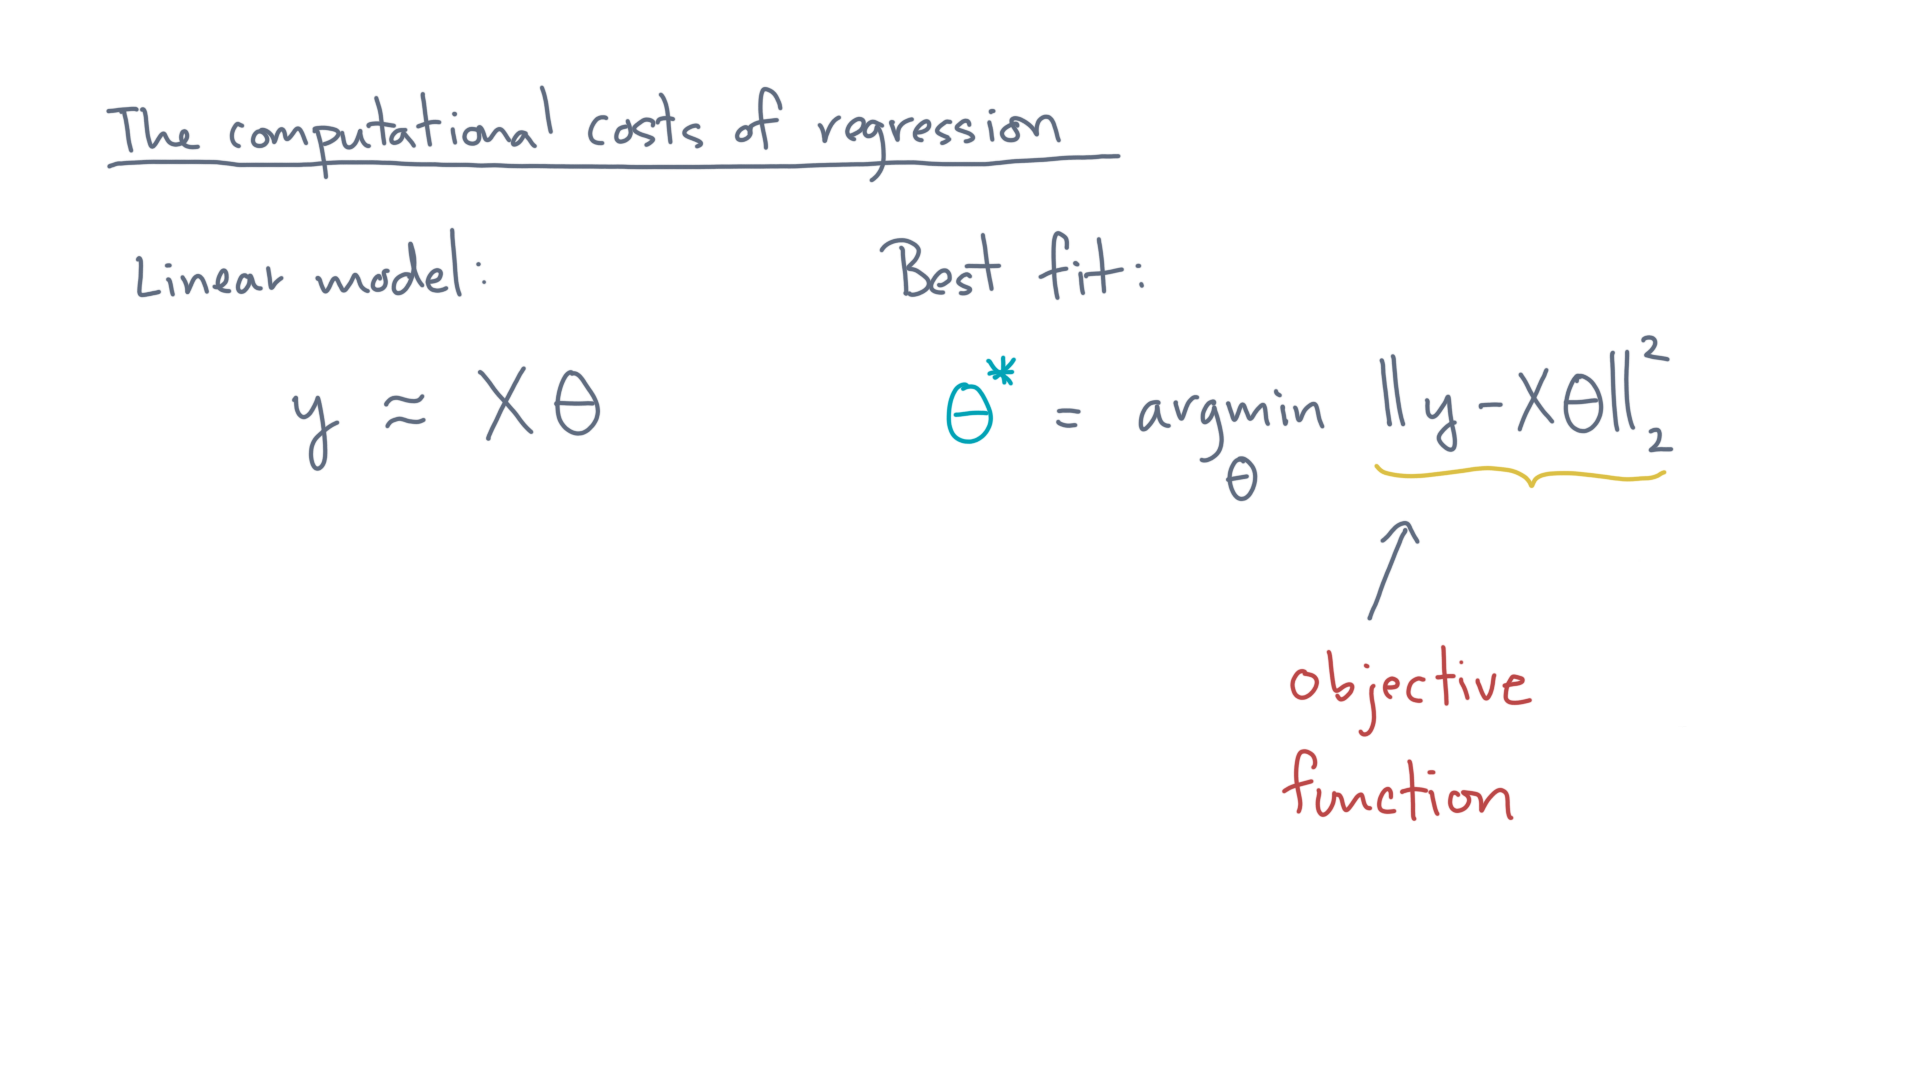 The computational costs of regression
Linear model:
y ≈ Xθ
Best fit:
θ* = argmin ‖y - Xθ‖₂²
θ
objective
function